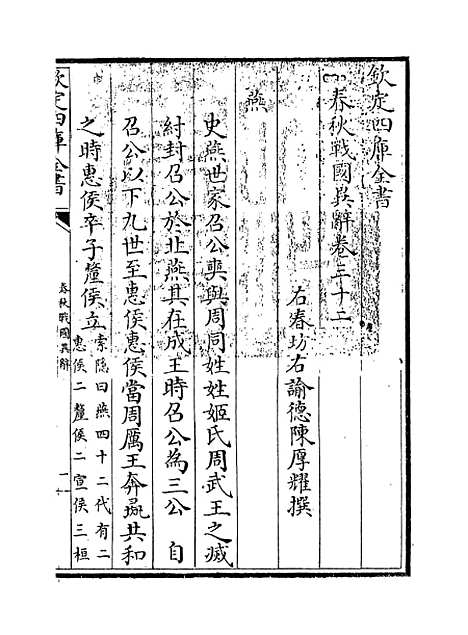 欽定四庫全書
春秋戰國異辭卷三十二
右春坊右諭德陳厚耀撰
燕
史燕世家召公奭與周同姓姓姬氏周武王之滅
紂封召公於北燕其在成王時召公為三公　自
召公以下九世至惠侯惠侯當周厲王奔彘共和
之時惠侯卒子釐侯立索隐曰燕四十二代有二
惠侯二釐侯二宣侯三桓
欽定四庫全書
春秋戰國異辭